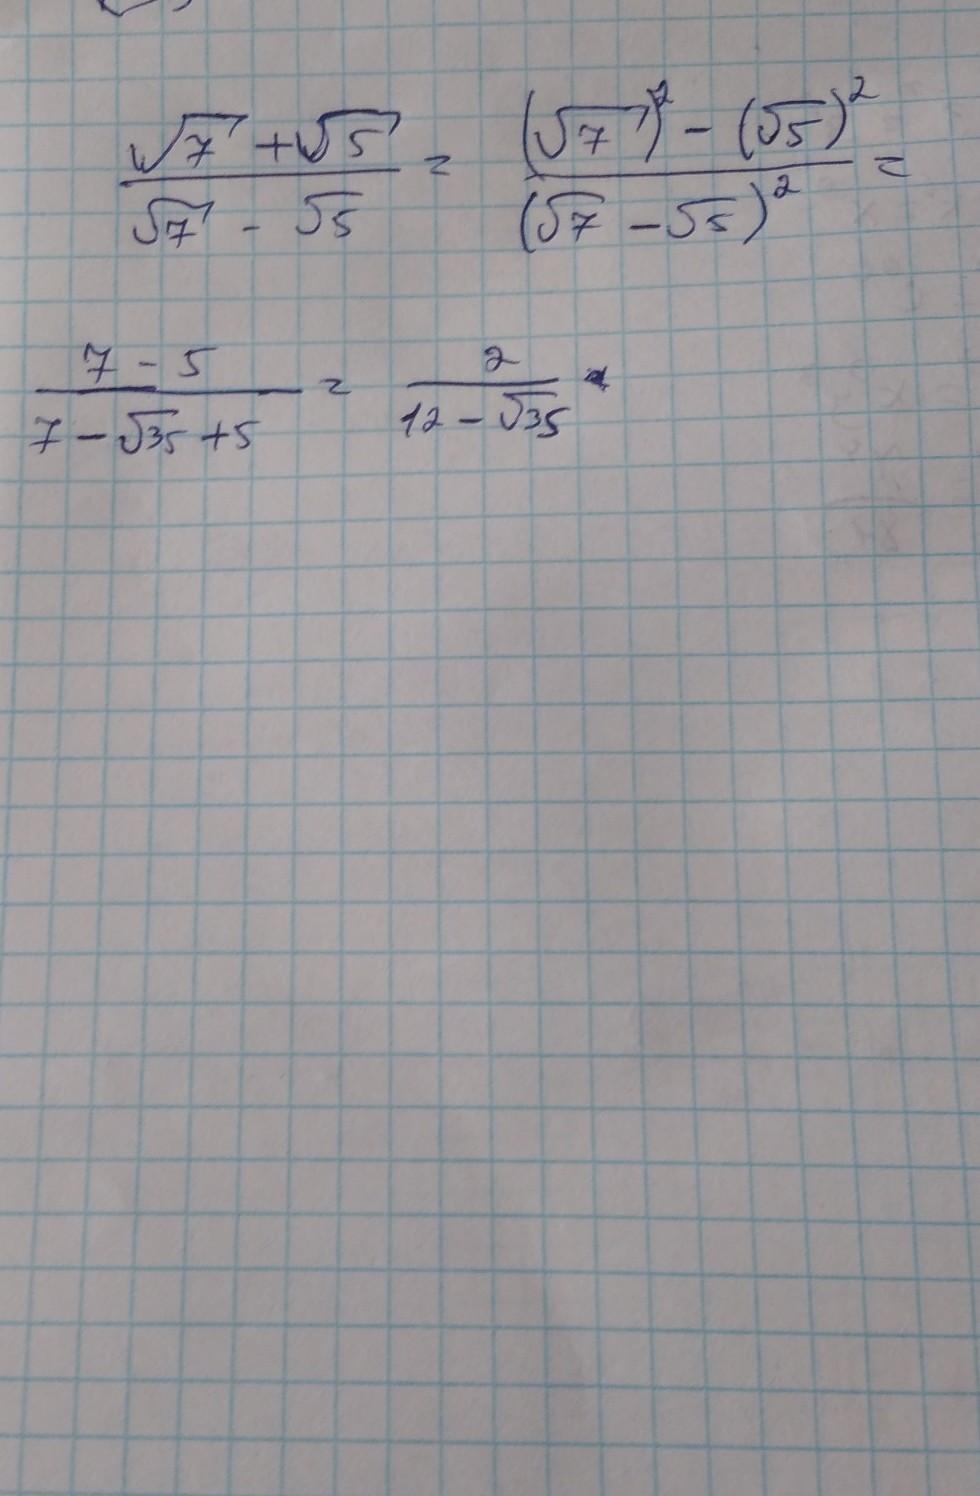 (√7 + √5)/(√7 - √5) = ((√7)² - (√5)²)/((√7 - √5)²) =
(7 - 5)/(7 - √35 + 5) = 2/(12 - √35)